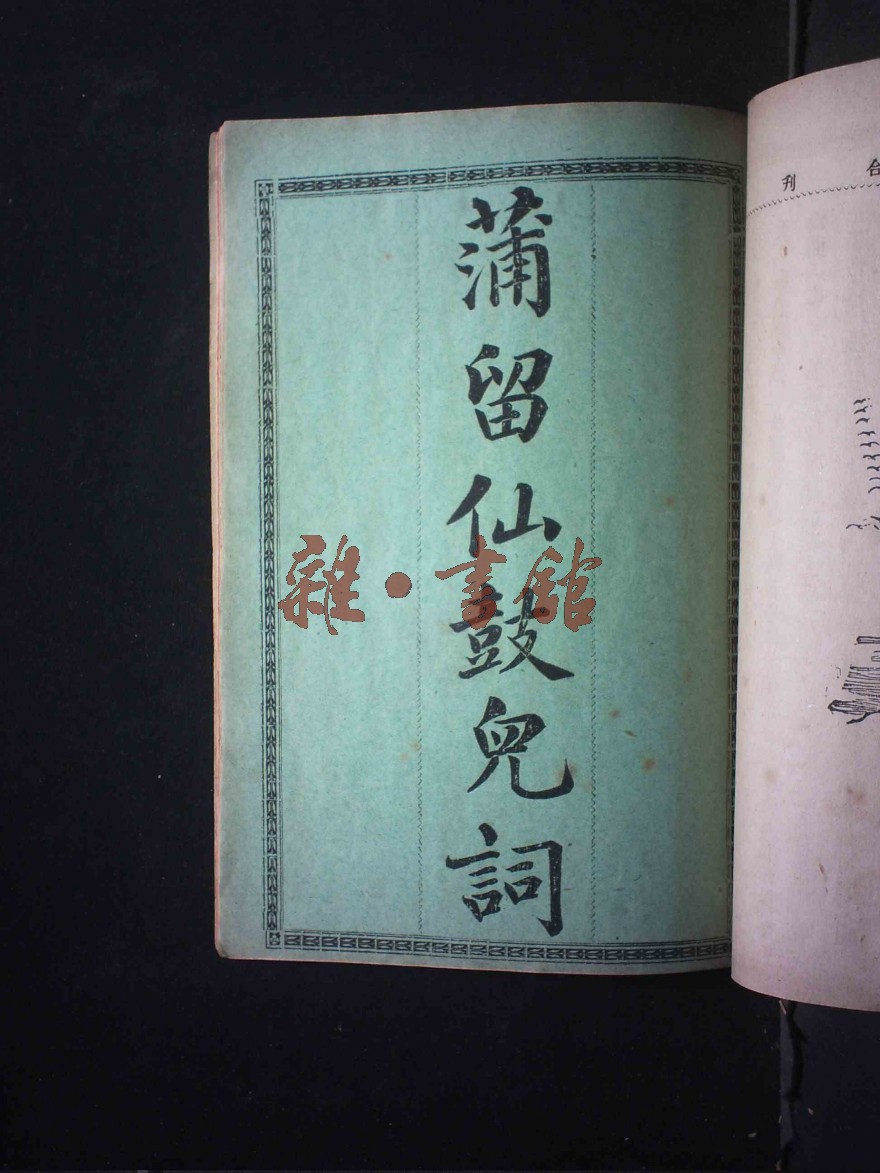 蒲留仙鼓兒詞
雜·書館
合刊